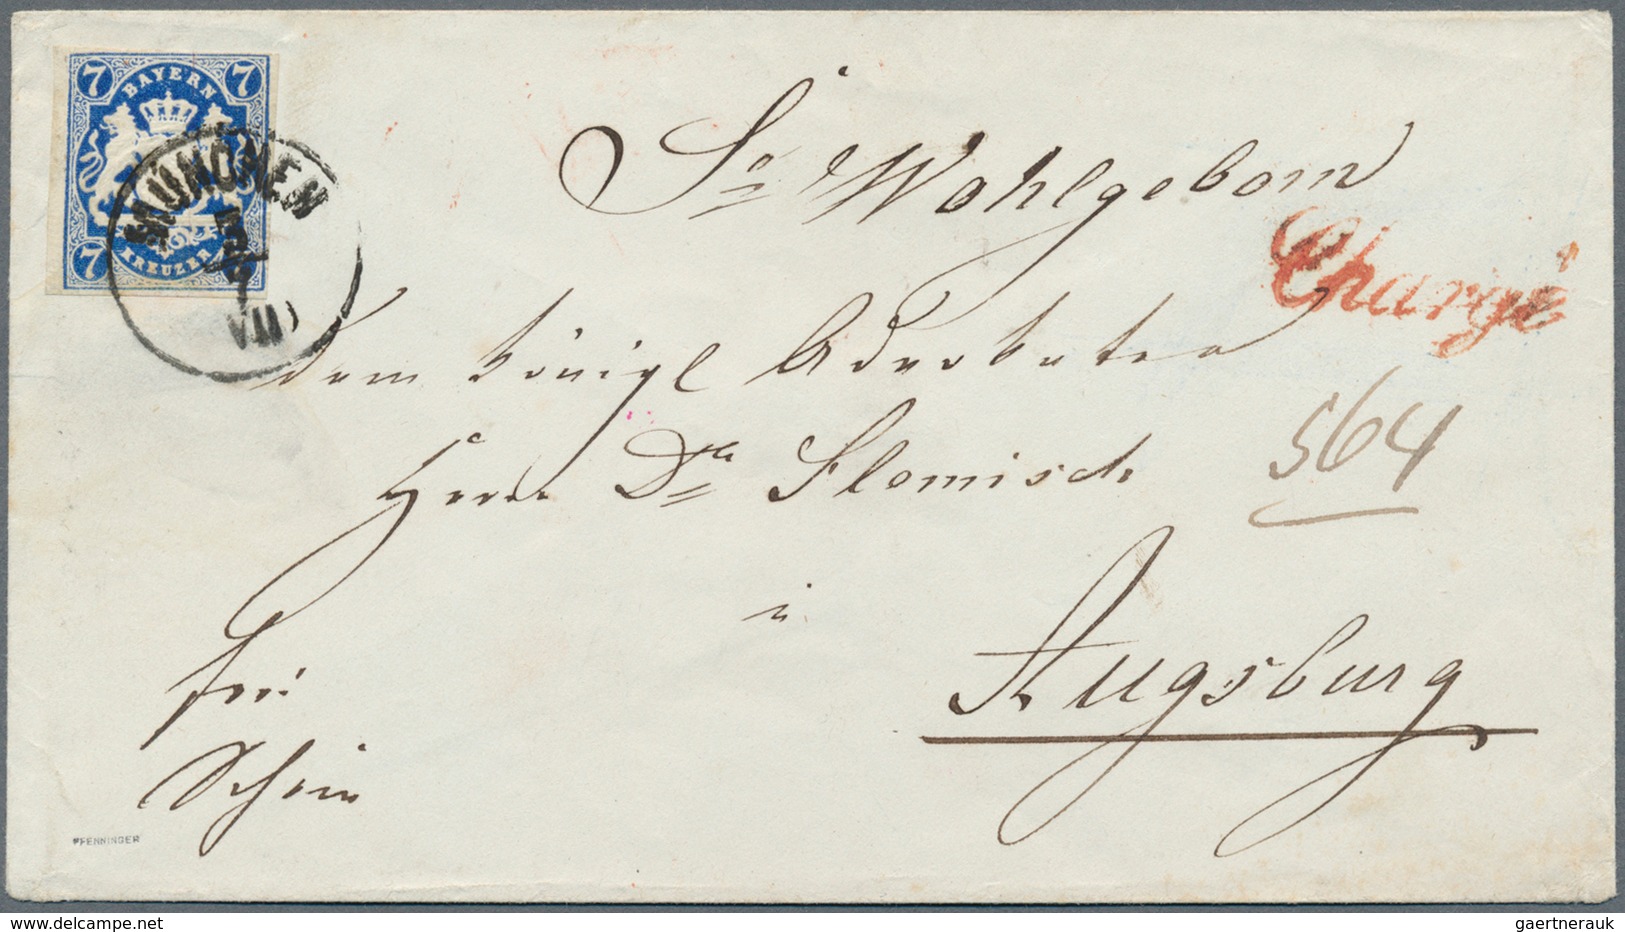 7 7
BAYERN
7 7
KREUZER
MÜNCHEN
3/7
VII
Sr Wohlgeborn
Chargé
dem königl Advokaten
Herrn Dr Flomisch
564
in
Augsburg
frei
Schein
PFENNINGER
delcampe.net
gaertnerauk